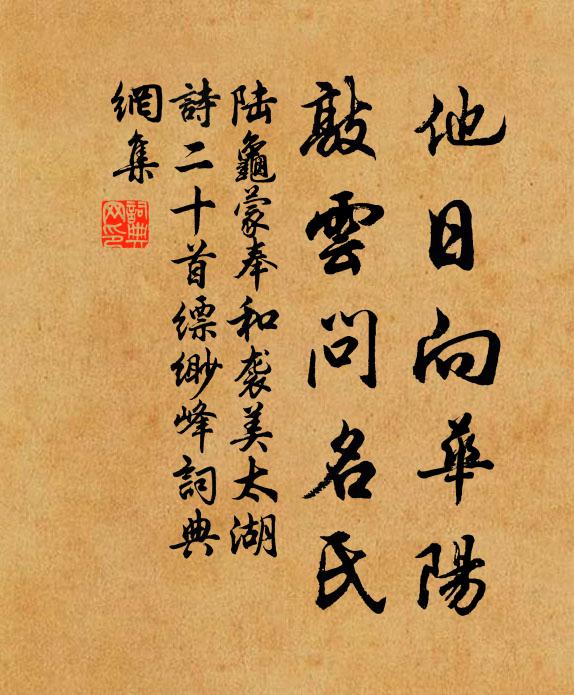 他日向華陽
敲雲問名氏
陆龜蒙奉和袭美太湖
詩二十首缥缈峰詞典
網集
詞典
网印